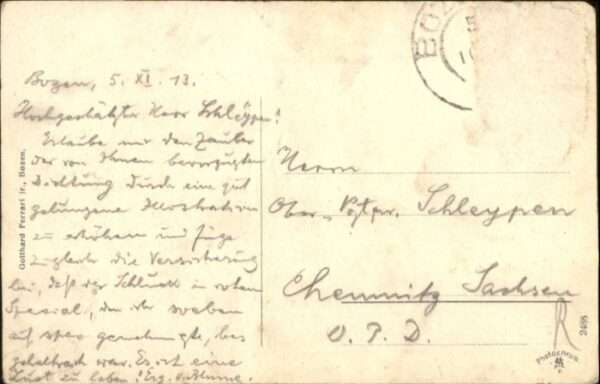 Bozen, 5. XI. 13.
Hochgeschätzter Herr Schleypen!
Erlaube mir den Zauber
der von Ihnen bevorzugten
Dichtung durch eine gut
gelungene Illustration
zu erhöhen und füge
zugleich die Versicherung
bei, daß der Schluck in rotem
Spezial, den ich soeben
auf genehmigte, bes
war. Es ist eine
Lust zu leben!
Gotthard Ferrari jr., Bozen.
BOZ
Herrn
Ober- Schleypen
Chemnitz Sachsen
O. P. D.
R
2498